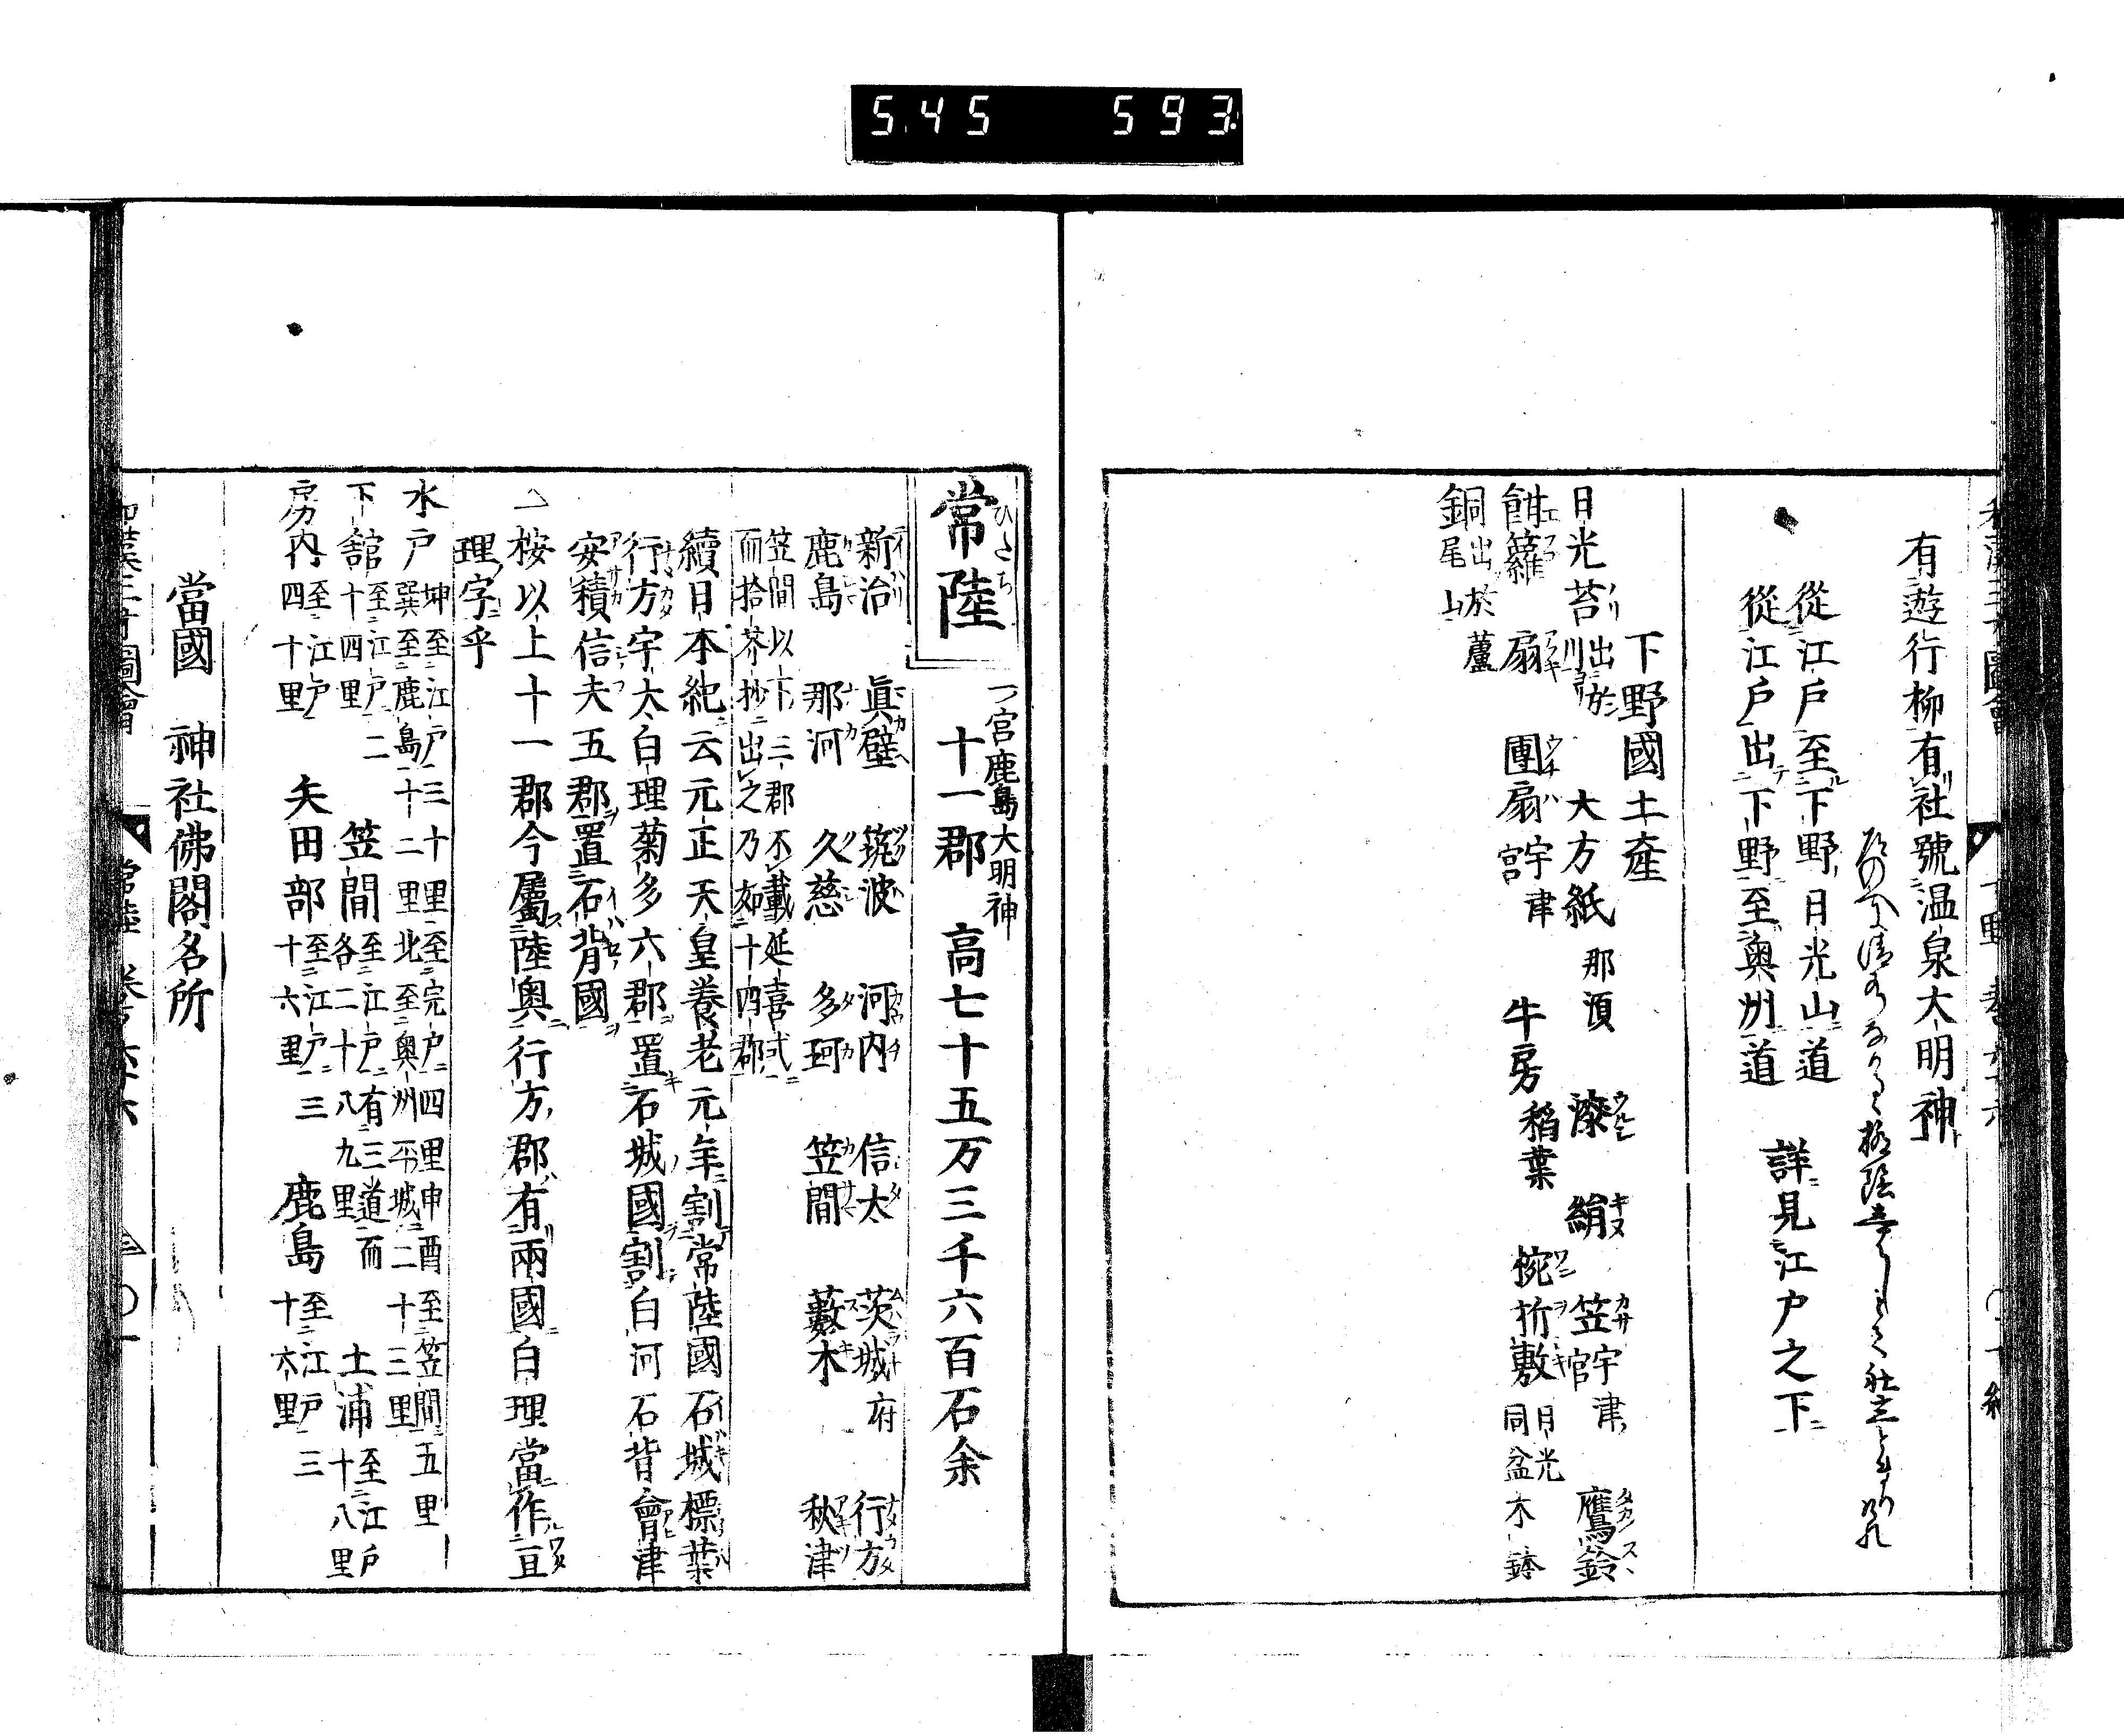 5.45 593.
有遊行柳有社號温泉大明神
從江戸至下野日光山道
從江戸出下野至奥州道
詳見江戸之下
下野國土産
日光苔 出於川 大方紙 那須 漆 絹 笠 宇津宮 鷹鈴
扇 團扇 宇津宮 牛房 稻葉 椀 折敷 日光同盆木鉢
銅 出於蘆尾山
常陸
ひたち
一宮鹿島大明神
十一郡 高七十五万三千六百石余
新治 眞壁 筑波 河内 信太 茨城 府 行方
鹿島 那河 久慈 多珂 笠間 藪木 秋津
笠間以下三郡不載延喜式
而拾芥抄出之乃如十四郡
續日本紀云元正天皇養老元年割常陸國石城標葉
行方宇太白理菊多六郡置石城國割白河石背會津
安積信夫五郡置石背國
△按以上十一郡今屬陸奥行方郡有兩國白理當作亘
理字乎
水戸 坤至江戸三十里至宍戸四里申酉至笠間五里
巽至鹿島十二里北至奥州平城二十三里
下舘 至江戸二十四里 笠間 至江戸有三道而各二十八九里 土浦 至江戸十八里
房内 至江戸四十里 矢田部 至江戸三十六里 鹿島 至江戸三十六里
當國 神社佛閣名所